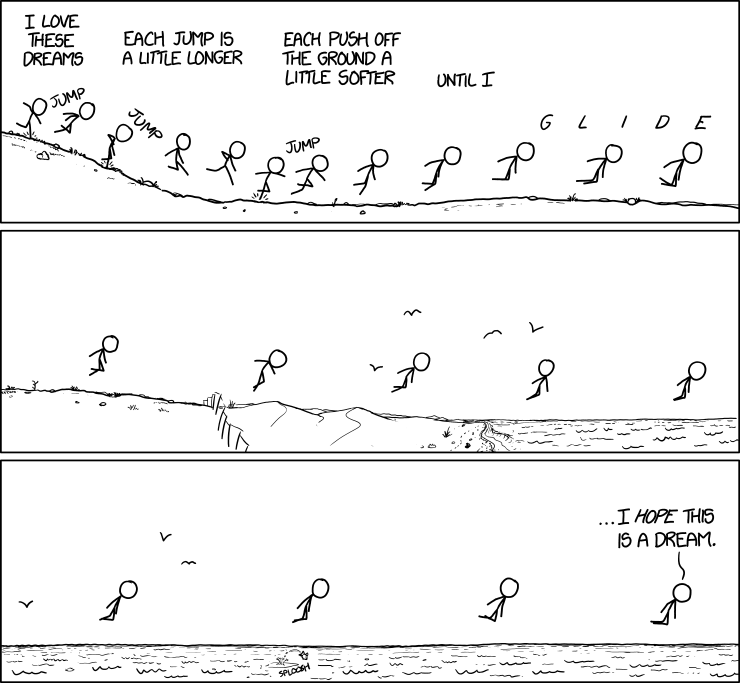 I LOVE
THESE
DREAMS
JUMP
EACH JUMP IS
A LITTLE LONGER
JUMP
EACH PUSH OFF
THE GROUND A
LITTLE SOFTER
JUMP
UNTIL I
G L I D E
...I HOPE THIS
IS A DREAM.
SPLOOSH